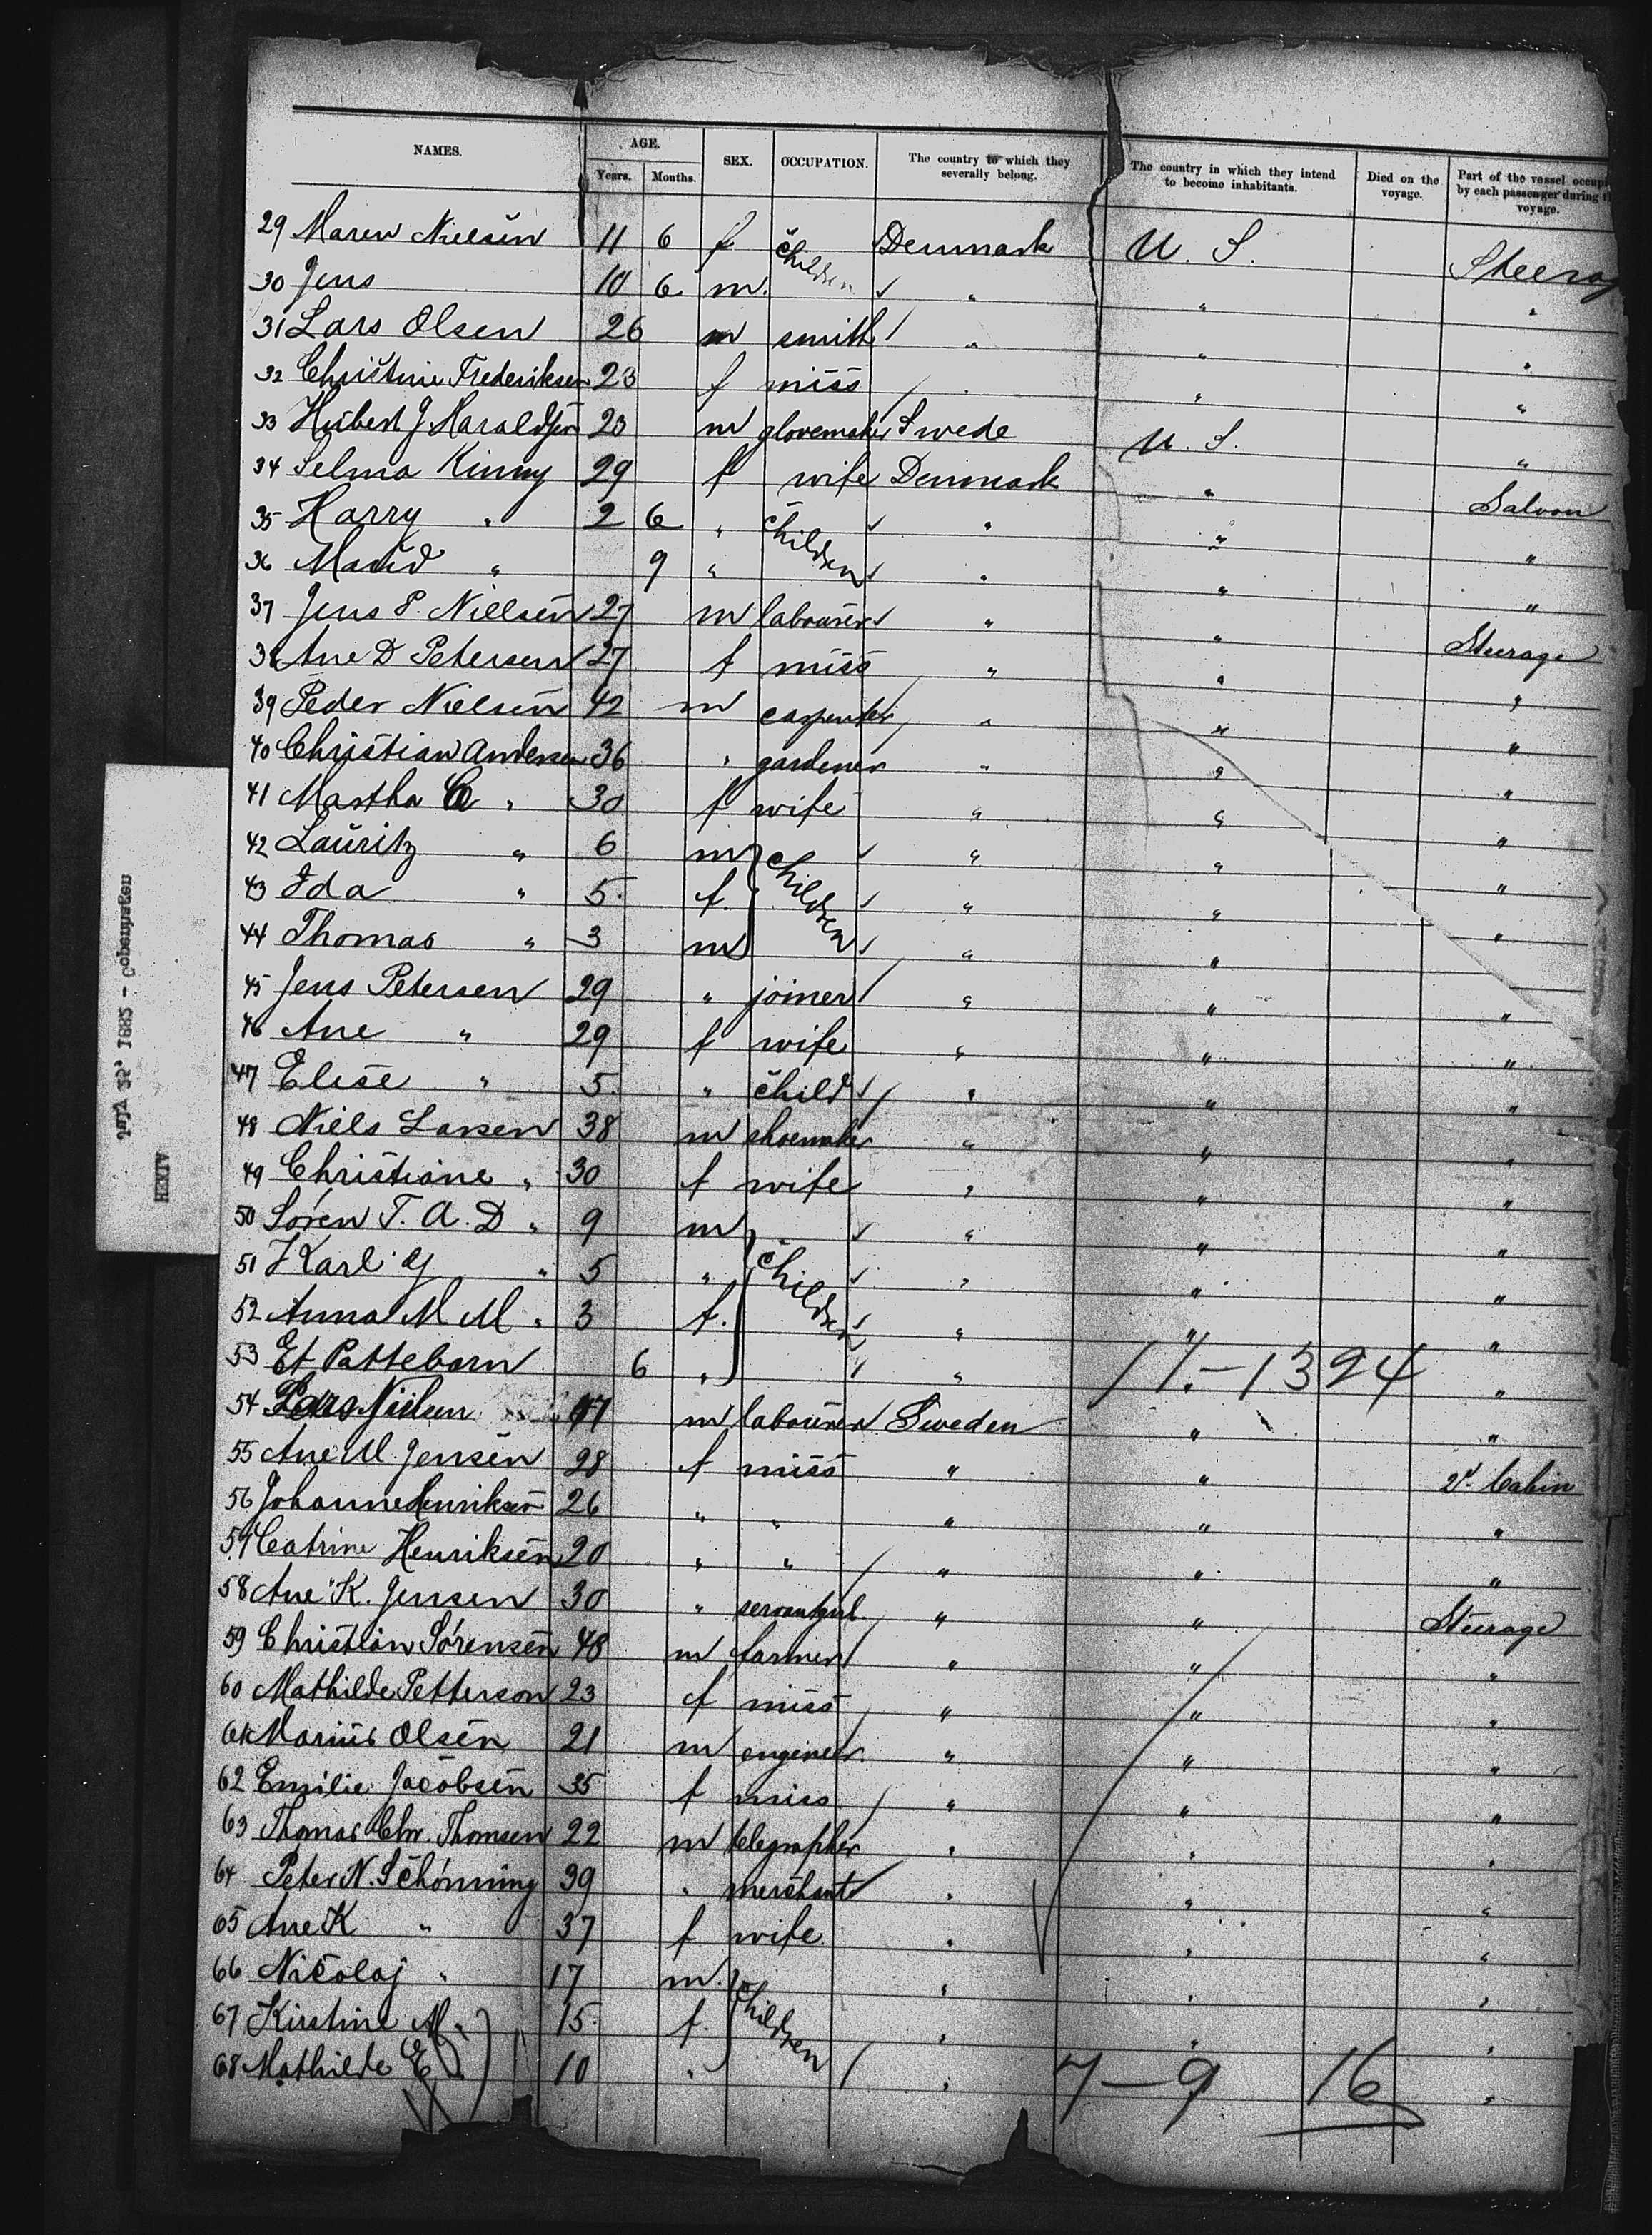 NAMES. AGE. SEX. OCCUPATION. The country to which they severally belong. The country in which they intend to become inhabitants. Died on the voyage. Part of the vessel occup by each passenger during voyage.
Years. Months.
29 Maren Nielsen 11 6 f Children Denmark U. S. Steerag
30 Jens 10 6 m. " " "
31 Lars Olsen 26 m smith " " "
32 Christine Frederiksen 23 f miss " " "
33 Hubert J Haraldsson 23 m glovemaker Swede U. S. "
34 Selma Kinny 29 f wife Denmark " Saloon
35 Harry " 2 6 " children " " "
36 Maud " 9 " " " "
37 Jens P. Nielsen 27 m labourer " " Steerage
38 Ane D Petersen 27 f miss " " "
39 Peder Nielsen 42 m carpenter " " "
40 Christian Andersen 36 " gardener " " "
41 Martha C " 30 f wife " " "
42 Lauritz " 6 m children " " "
43 Ida " 5 f. " " "
44 Thomas " 3 m " " "
45 Jens Petersen 29 " joiner " " "
46 Ane " 29 f wife " " "
47 Elise " 5 " child " " "
48 Niels Larsen 38 m shoemaker " " "
49 Christiane " 30 f wife " " "
50 Sören T. A. D " 9 m children " " "
51 Karl G " 5 " " " "
52 Anna M M " 3 f. " " "
53 Et Pattebarn 6 " " 17.-1324 "
54 Lars Nielsen 17 m labourer Sweden " "
55 Ane M. Jensen 28 f miss " " 2d. Cabin
56 Johanne Henriksen 26 " " " " "
57 Catrine Henriksen 20 " " " " "
58 Ane K. Jensen 30 " servantgirl " " Steerage
59 Christian Sörensen 48 m farmer " " "
60 Mathilde Petterson 23 f miss " " "
61 Marius Olsen 21 m engineer " " "
62 Emilie Jacobsen 35 f miss " " "
63 Thomas Chr. Thomsen 22 m telegrapher " " "
64 Peter N. Schönning 39 " merchant " " "
65 Ane K " 37 f wife " " "
66 Nicolaj " 17 m. children " " "
67 Kirstine M. " 15 f. " " "
68 Mathilde E 10 " " 7-9 16 "
July 29, 1882 - Copenhagen
HEKLA